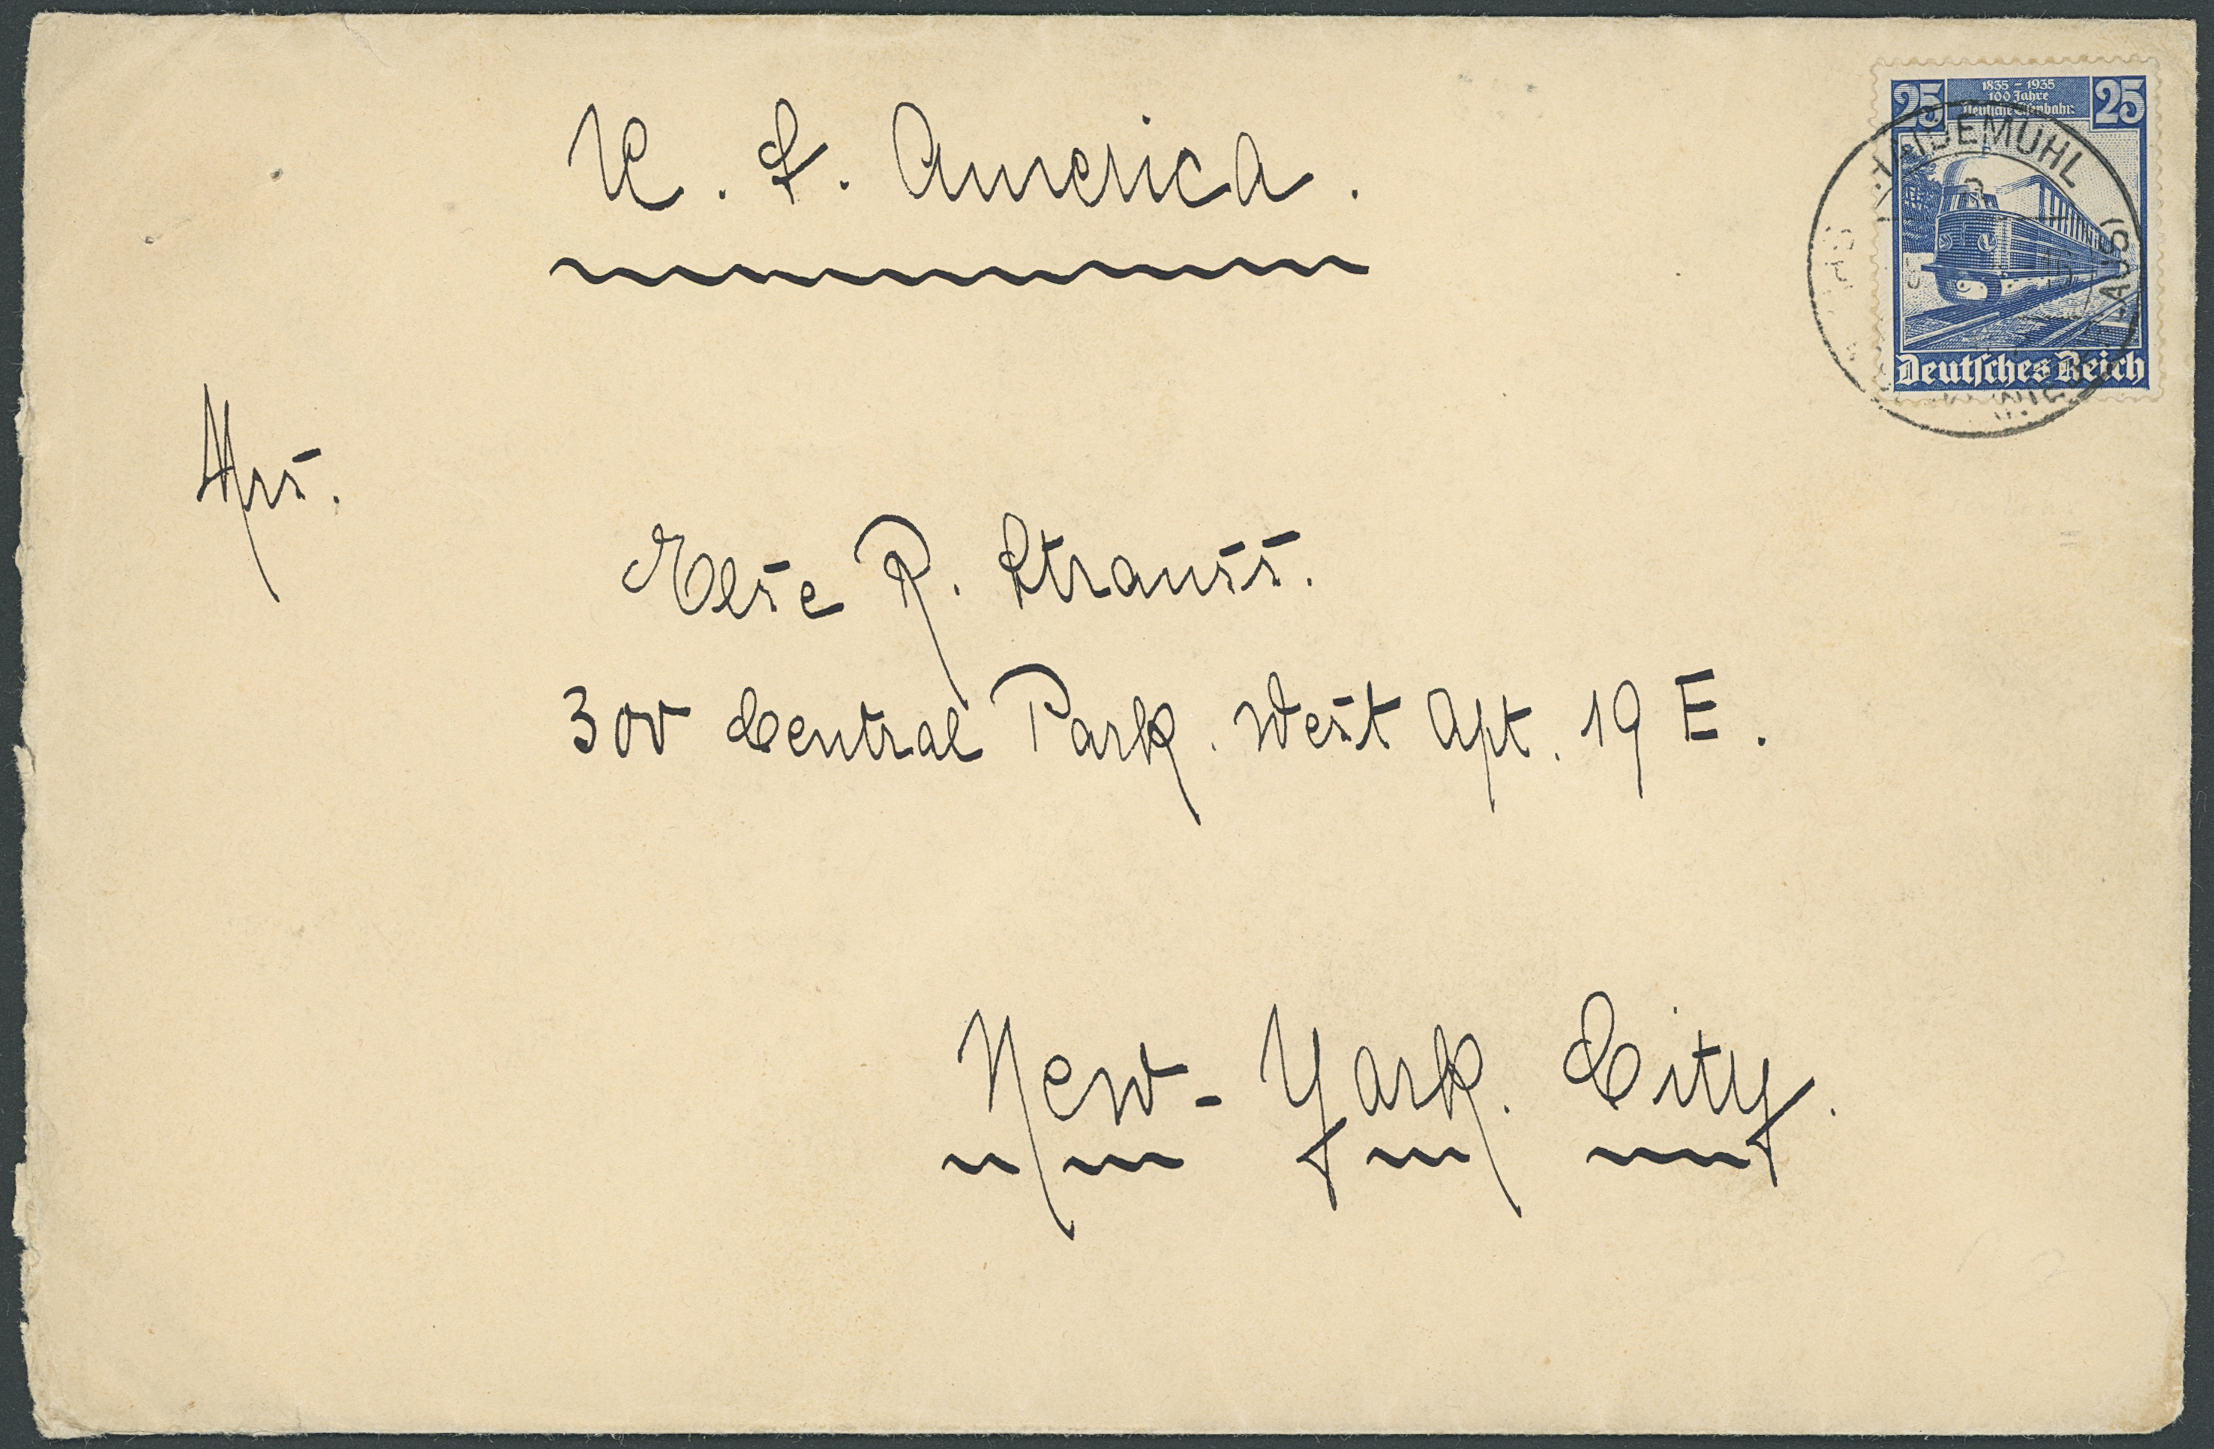 U. S. America.
25 1835 - 1935 25
100 Jahre
Deutsche Eisenbahn
HAIDEMÜHL
LAUS)
Deutsches Reich
Mrs.
Else R. Strauss.
300 Central Park. West Apt. 19 E.
New-York. City.